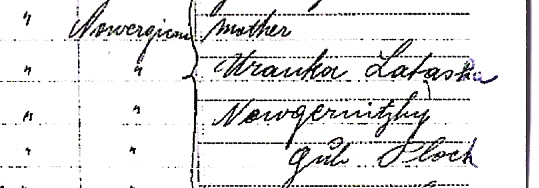 " Nowergiem mother
" " Uranka Lataska
" " Nowgernitzky
" " Gub Plock